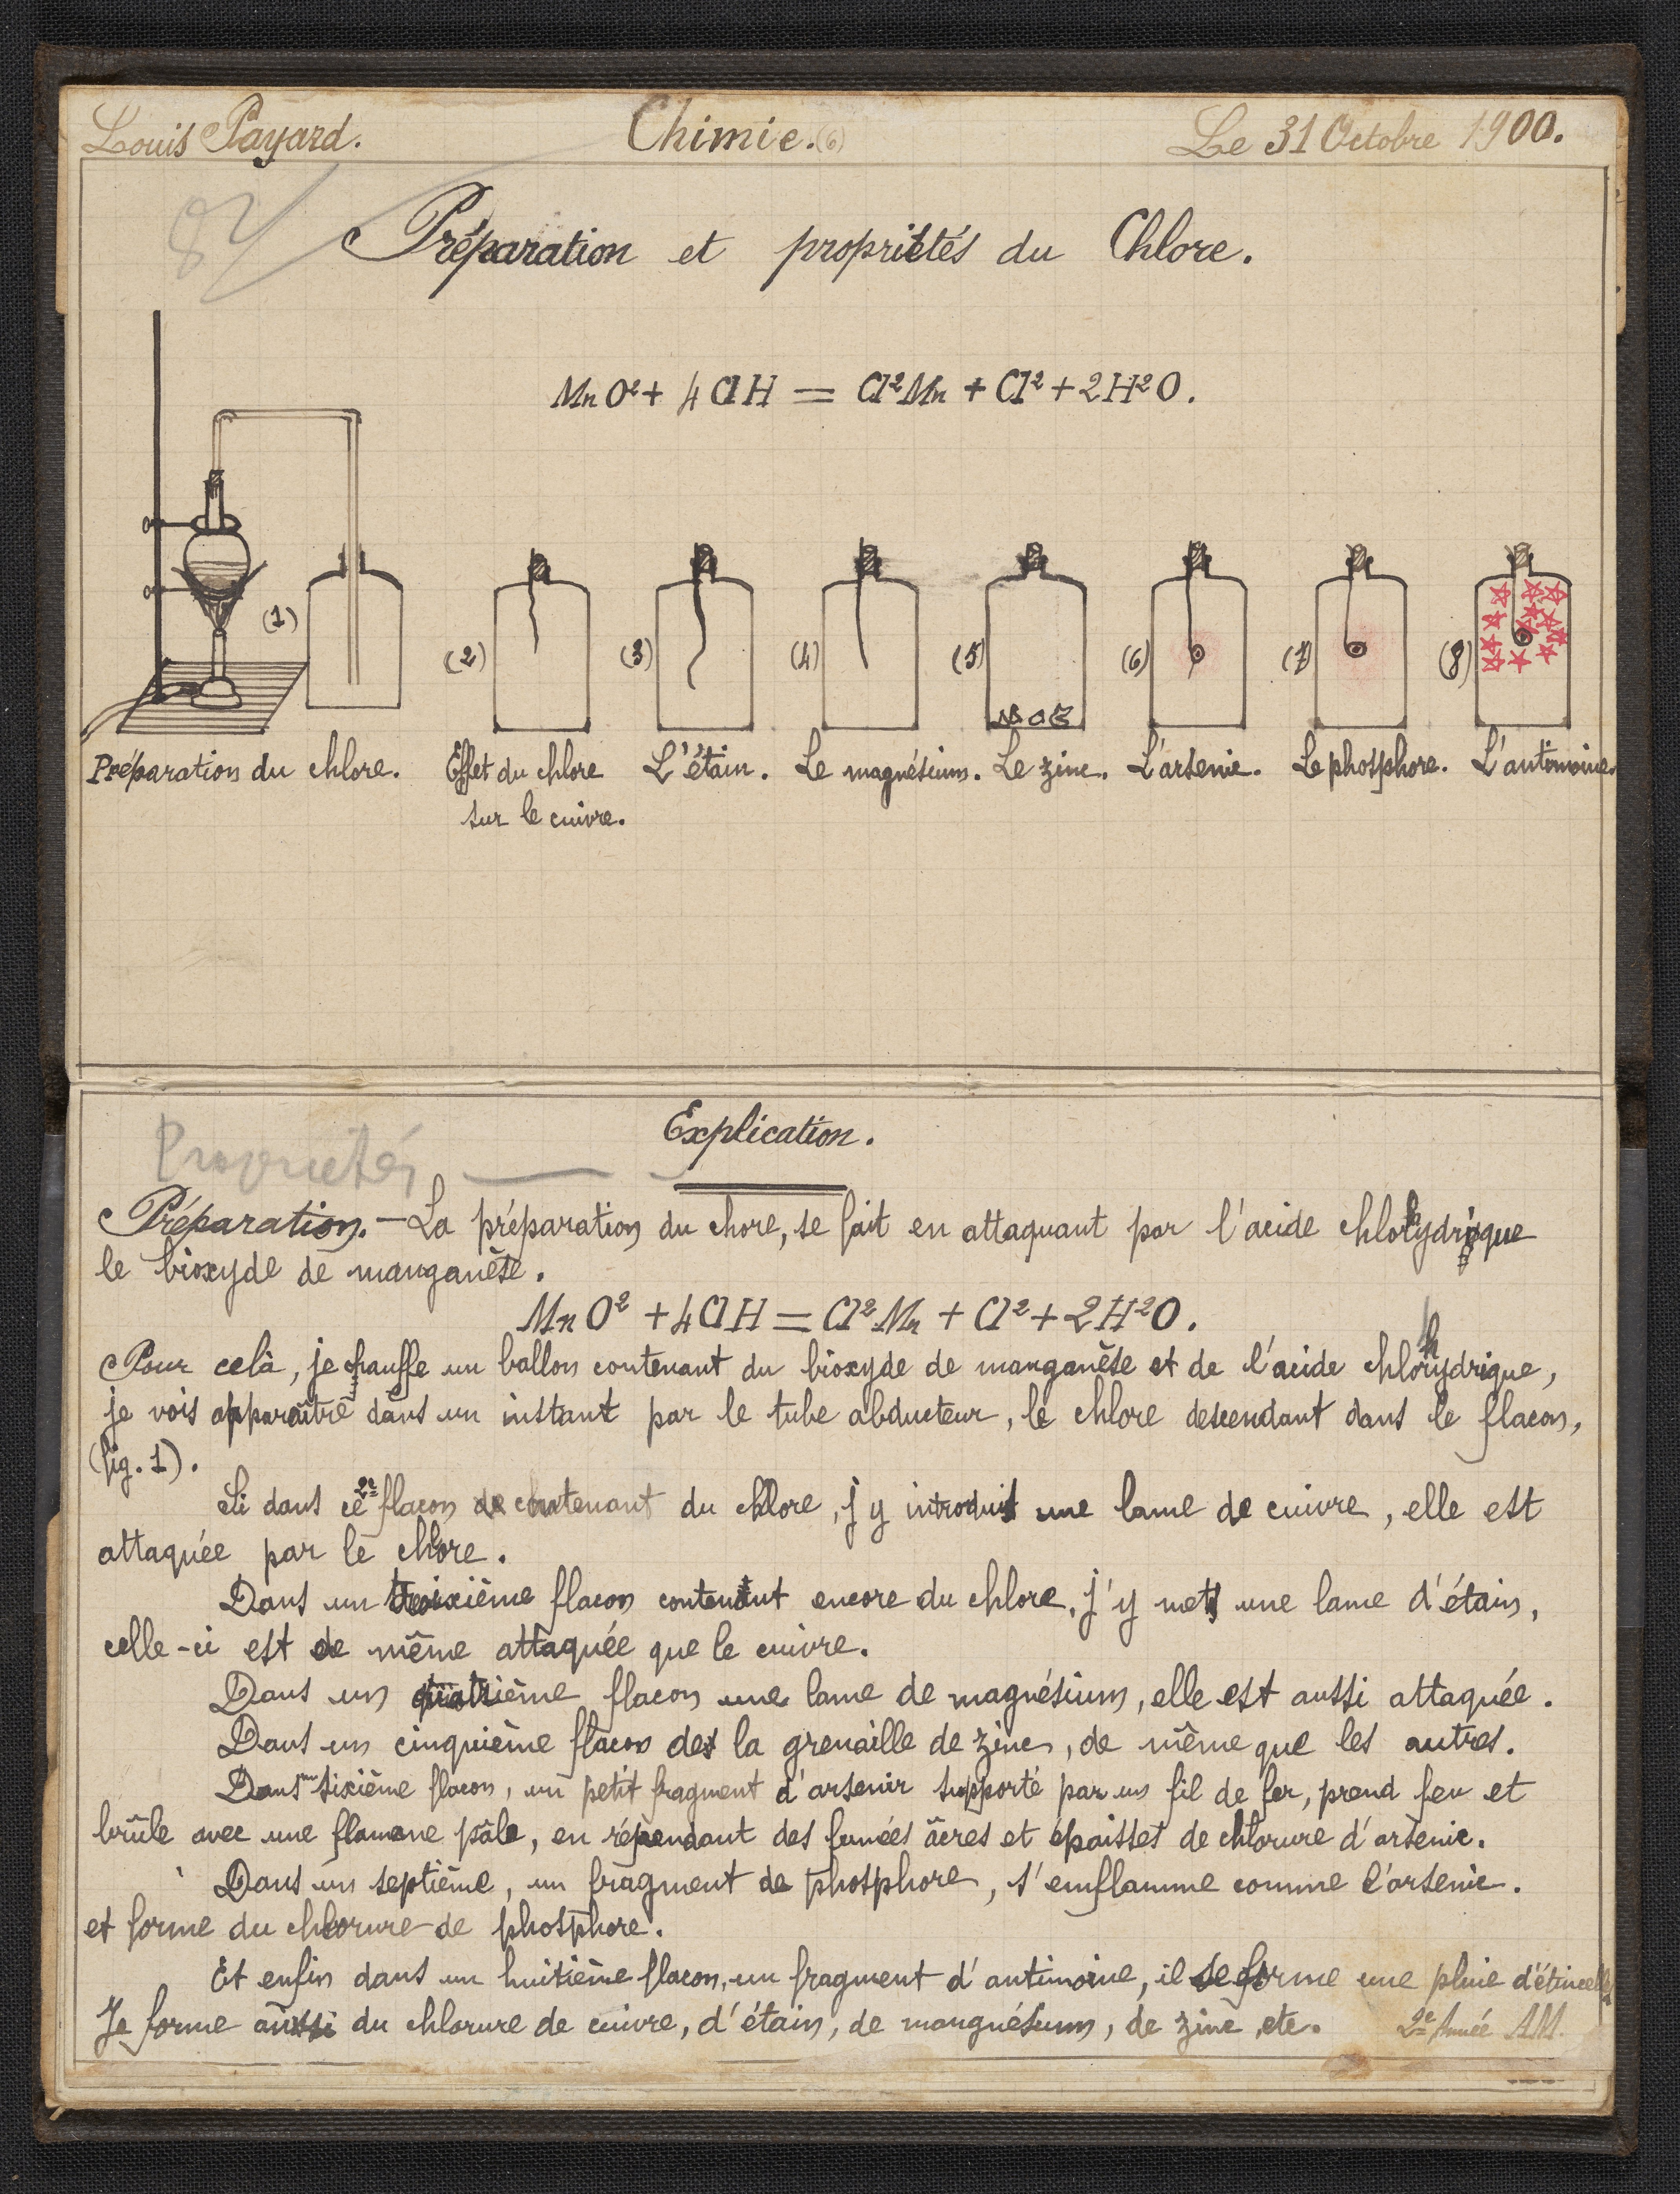 Louis Payard. Chimie. (6) Le 31 Octobre 1900.
Préparation et propriétés du Chlore.
MnO² + 4ClH = Cl²Mn + Cl² + 2H²O.
(1) (2) (3) (4) (5) (6) (7) (8)
Préparation du chlore. Effet du chlore L'étain. Le magnésium. Le zinc. L'arsenic. Le phosphore. L'antimoine.
sur le cuivre.
Explication.
Propriétés
Préparation. — La préparation du chore, se fait en attaquant par l'acide chlorhydrique
le bioxyde de manganèse.
MnO² + 4ClH = Cl²Mn + Cl² + 2H²O.
Pour celà, je chauffe un ballon contenant du bioxyde de manganèse et de l'acide chlorhydrique,
je vois apparaître dans un instant par le tube abducteur, le chlore descendant dans le flacon,
(fig. 1).
Si dans ce 2e flacon contenant du chlore, j'y introduit une lame de cuivre, elle est
attaquée par le chlore.
Dans un troixième flacon contenant encore du chlore, j'y mets une lame d'étain,
celle-ci est de même attaquée que le cuivre.
Dans un quatrième flacon une lame de magnésium, elle est aussi attaquée.
Dans un cinquième flacon de la grenaille de zinc, de même que les autres.
Dans un sixième flacon, un petit fragment d'arsenir supporté par un fil de fer, prend feu et
brûle avec une flamme pâle, en répendant des fumées âcres et épaisses de chlorure d'arsenic.
Dans un septième, un fragment de phosphore, s'emflamme comme l'arsenic.
et forme du chlorure de phosphore.
Et enfin dans un huitième flacon, un fragment d'antimoine, il se forme une pluie d'étincelles
Je forme aussi du chlorure de cuivre, d'étain, de mangnésium, de zinc, etc. 2e Année AM.